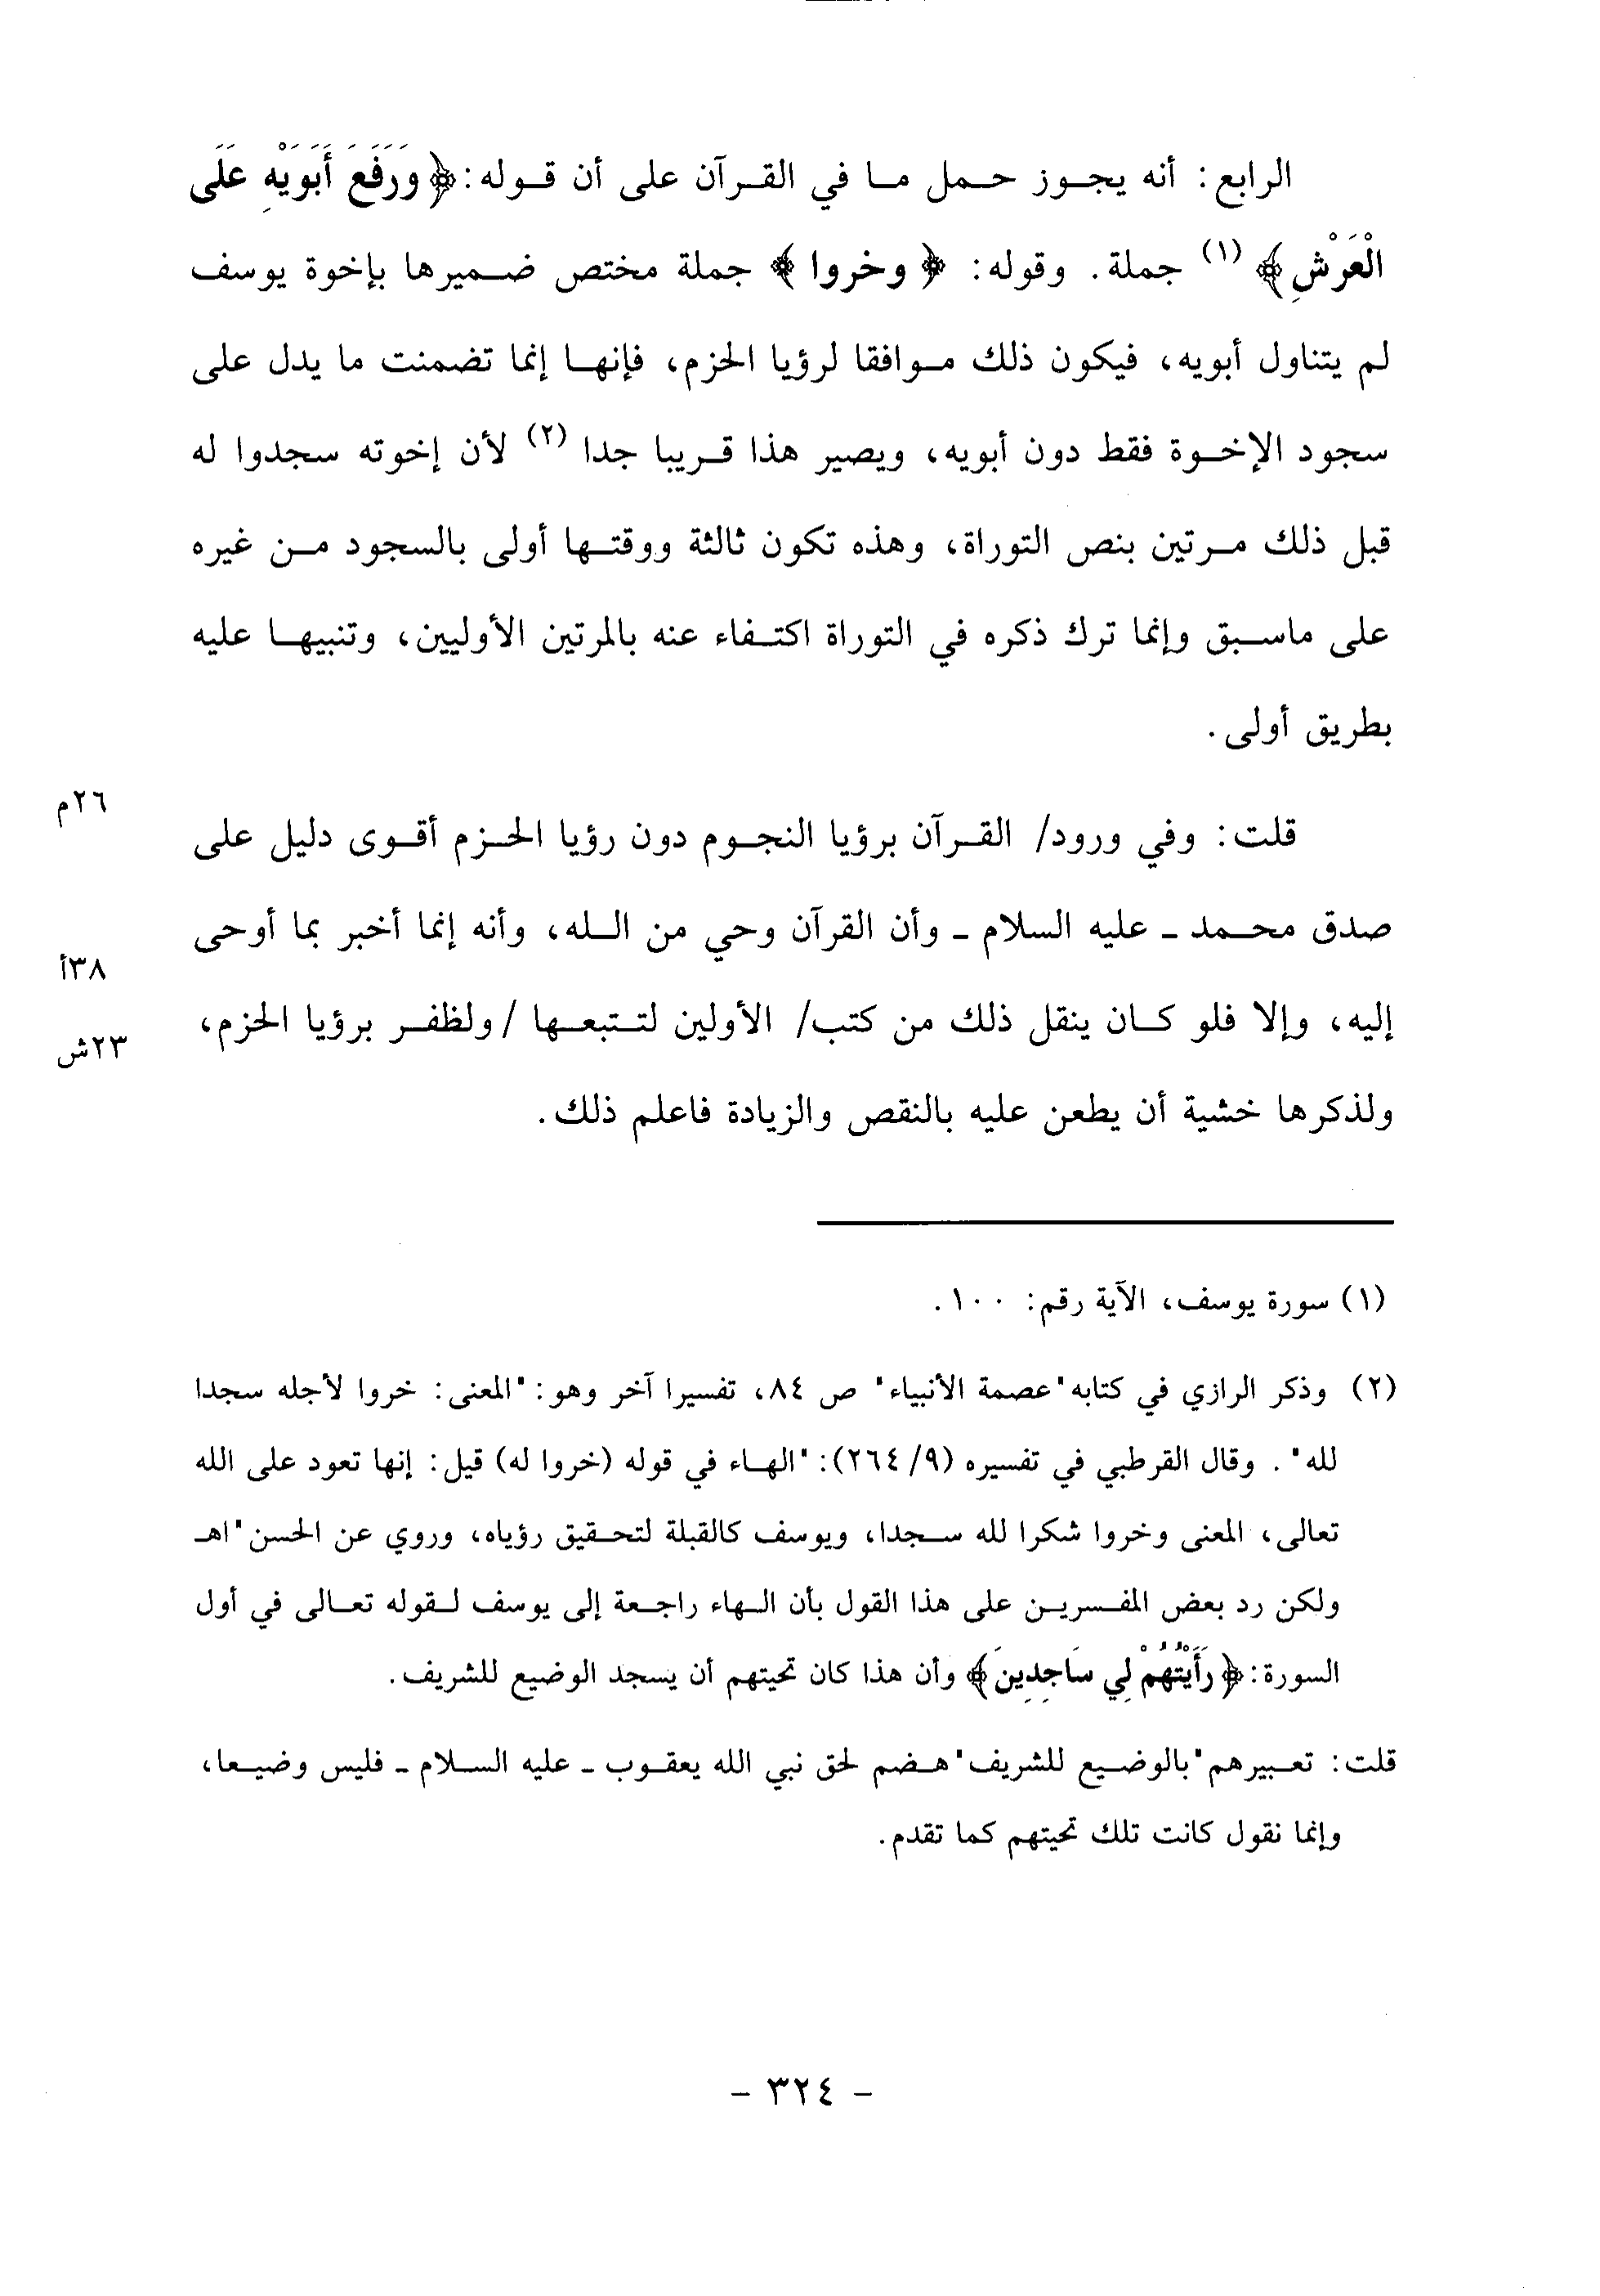 الرابع: أنه يجوز حمل ما في القرآن على أن قوله: ﴿وَرَفَعَ أَبَوَيْهِ عَلَى
الْعَرْشِ﴾ (١) جملة. وقوله: ﴿ وخروا ﴾ جملة مختص ضميرها بإخوة يوسف
لم يتناول أبويه، فيكون ذلك موافقا لرؤيا الحزم، فإنها إنما تضمنت ما يدل على
سجود الإخوة فقط دون أبويه، ويصير هذا قريبا جدا (٢) لأن إخوته سجدوا له
قبل ذلك مرتين بنص التوراة، وهذه تكون ثالثة ووقتها أولى بالسجود من غيره
على ماسبق وإنما ترك ذكره في التوراة اكتفاء عنه بالمرتين الأوليين، وتنبيها عليه
بطريق أولى.
٢٦م
قلت: وفي ورود/ القرآن برؤيا النجوم دون رؤيا الحزم أقوى دليل على
صدق محمد - عليه السلام - وأن القرآن وحي من الله، وأنه إنما أخبر بما أوحى
٣٨أ
إليه، وإلا فلو كان ينقل ذلك من كتب/ الأولين لتتبعها /ولظفر برؤيا الحزم،
٢٣ش
ولذكرها خشية أن يطعن عليه بالنقص والزيادة فاعلم ذلك.
(١) سورة يوسف، الآية رقم: ١٠٠.
(٢) وذكر الرازي في كتابه "عصمة الأنبياء" ص ٨٤، تفسيرا آخر وهو: "المعنى: خروا لأجله سجدا
لله". وقال القرطبي في تفسيره (٩/ ٢٦٤): "الهاء في قوله (خروا له) قيل: إنها تعود على الله
تعالى، المعنى وخروا شكرا لله سجدا، ويوسف كالقبلة لتحقيق رؤياه، وروي عن الحسن" اهـ
ولكن رد بعض المفسرين على هذا القول بأن الهاء راجعة إلى يوسف لقوله تعالى في أول
السورة: ﴿رَأَيْتُهُمْ لِي سَاجِدِينَ﴾ وأن هذا كان تحيتهم أن يسجد الوضيع للشريف.
قلت: تعبيرهم "بالوضيع للشريف" هضم لحق نبي الله يعقوب - عليه السلام - فليس وضيعا،
وإنما نقول كانت تلك تحيتهم كما تقدم.
- ٣٢٤ -